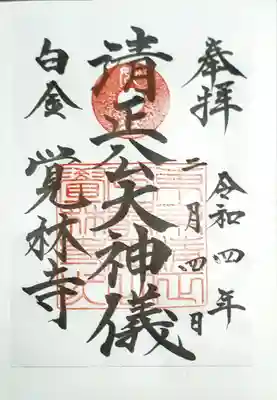 奉拝
令和四年
二月四日
清正公大神儀
白金
覚林寺